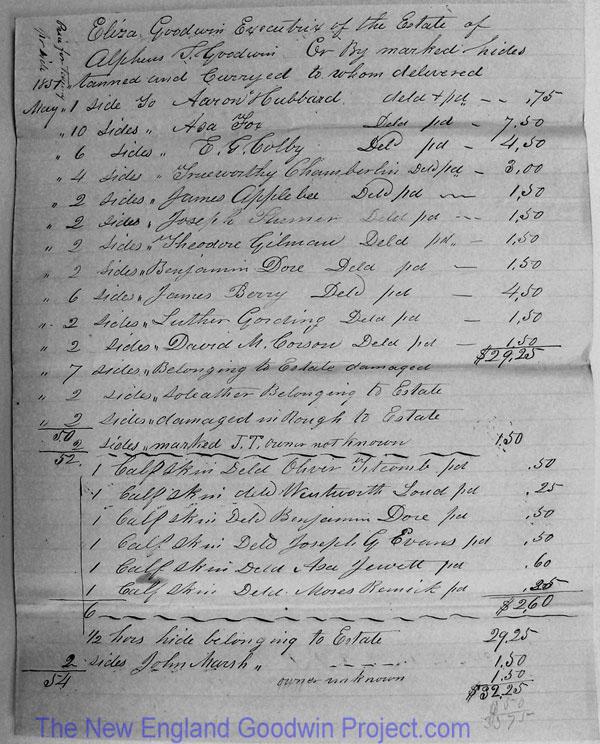 Eliza Goodwin Executrix of the Estate of
Alpheus S. Goodwin Cr By marked hides
tanned and Curryed to whom delivered
1851
May 1 side To Aaron Hubbard deld & pd -- .75
" 10 Sides " Asa Fox Deld pd - 7.50
" 6 sides " E. G. Colby Deld pd - 4.50
" 4 sides " Trueworthy Chamberlin Deld pd - 3.00
" 2 sides " James Applebee Deld pd 1.50
" 2 sides " Joseph Deld pd --- 1.50
" 2 sides " Theodore Gilman Deld pd " - 1.50
" 2 sides " Benjamin Dore Deld pd - 1.50
" 6 sides " James Berry Deld pd - 4.50
" 2 sides " Luther Deld pd - 1.50
" 2 sides " David M. Corson Deld pd - 1.50
$29.25
" 7 sides " Belonging to Estate damaged
" 2 sides " soleather Belonging to Estate
" 2 sides " damaged in Rough to Estate
50
2 sides " marked J.T. owner not known 1.50
52
1 Calf Skin Deld Oliver Titcomb pd .50
1 Calf Skin deld Wentworth Loud pd .25
1 Calf Skin Deld Benjamin Dore pd .50
1 Calf Skin Deld Joseph G Evans pd .50
1 Calf Skin Deld Asa Jewett pd .60
1 Calf Skin Deld Moses Remick pd .25
6 $2.60
1/2 hors hide belonging to Estate 29.25
2 sides John Marsh " ----- 1.50
54 owner unknown 1.50
$32.25
The New England Goodwin Project.com